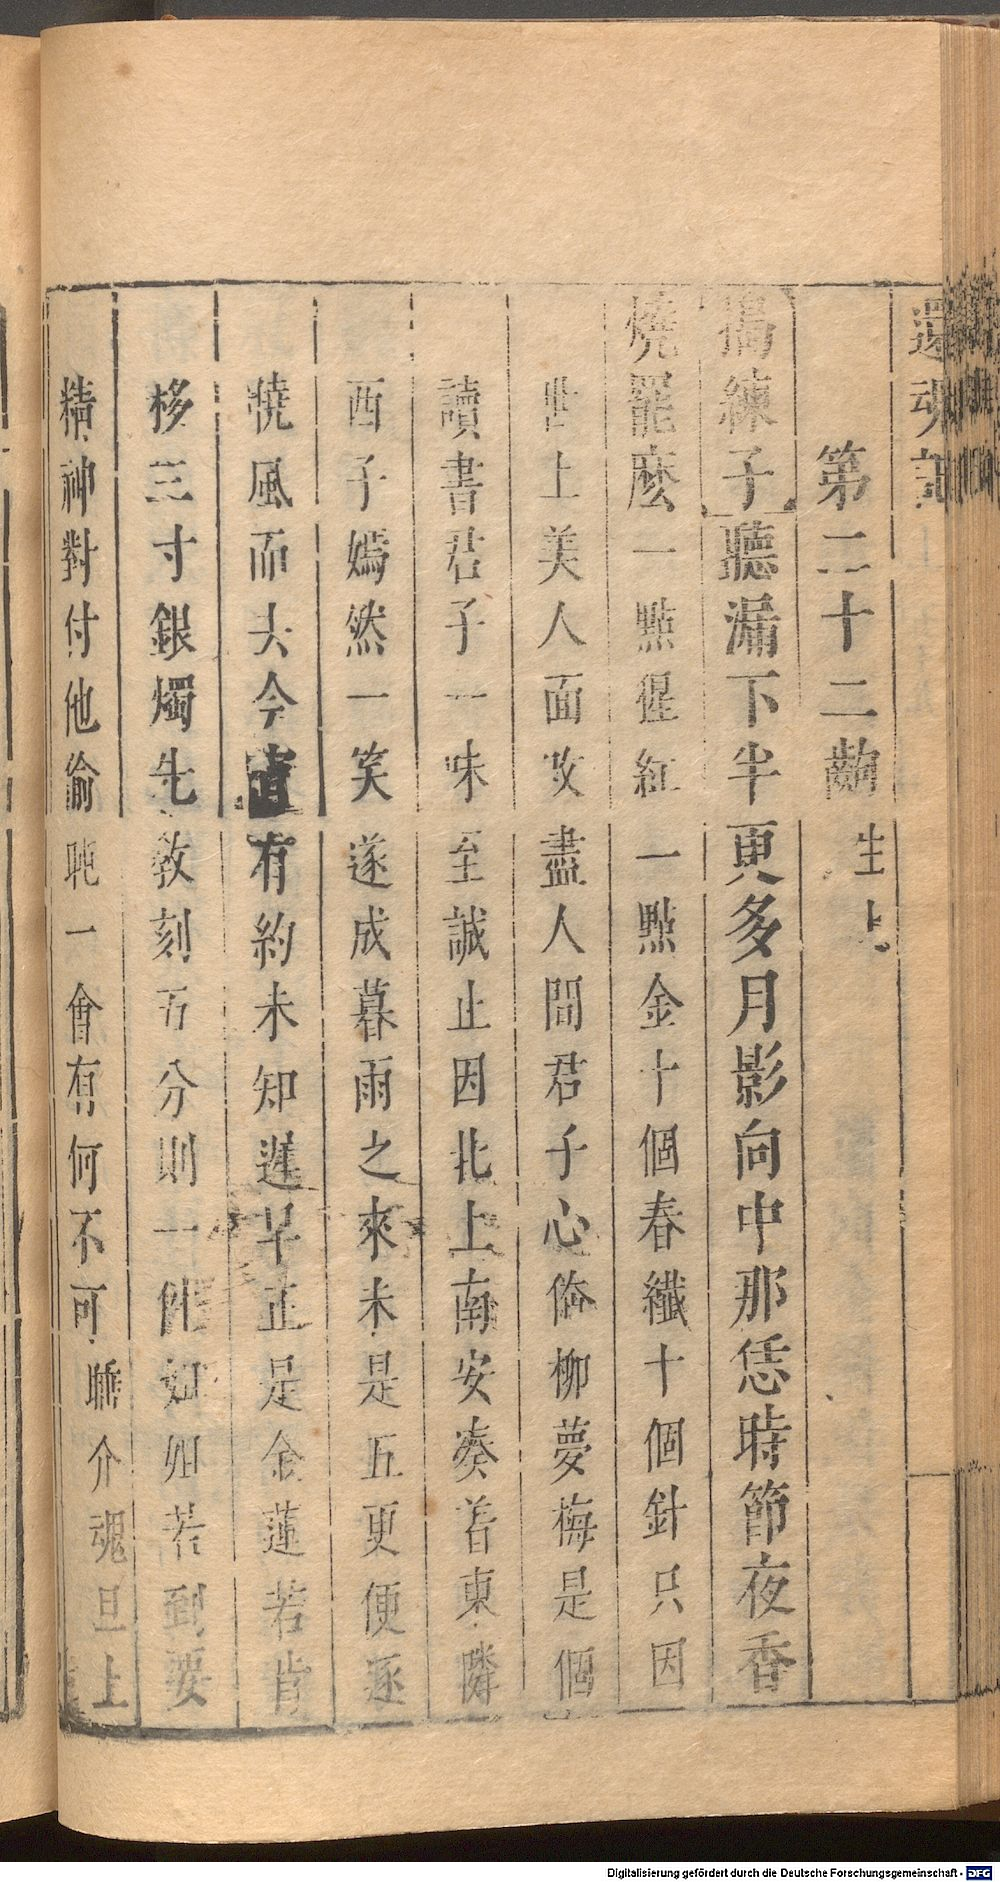 還魂記
第二十二齣 生上
搗練子聽漏下半更多月影向中那恁時節夜香
燒罷麼一點猩紅一點金十個春纖十個針只因
世上美人面攻盡人間君子心俺柳夢梅是個
讀書君子一味至誠止因北上南安凑着東隣
西子嫣然一笑遂成暮雨之來未是五更便逐
曉風而去今宵有約未知遲早正是金蓮若肯
移三寸銀燭先教刻五分則一件如姐若到要
精神對付他偷盹一會有何不可睡介魂旦上
Digitalisierung gefördert durch die Deutsche Forschungsgemeinschaft - DFG